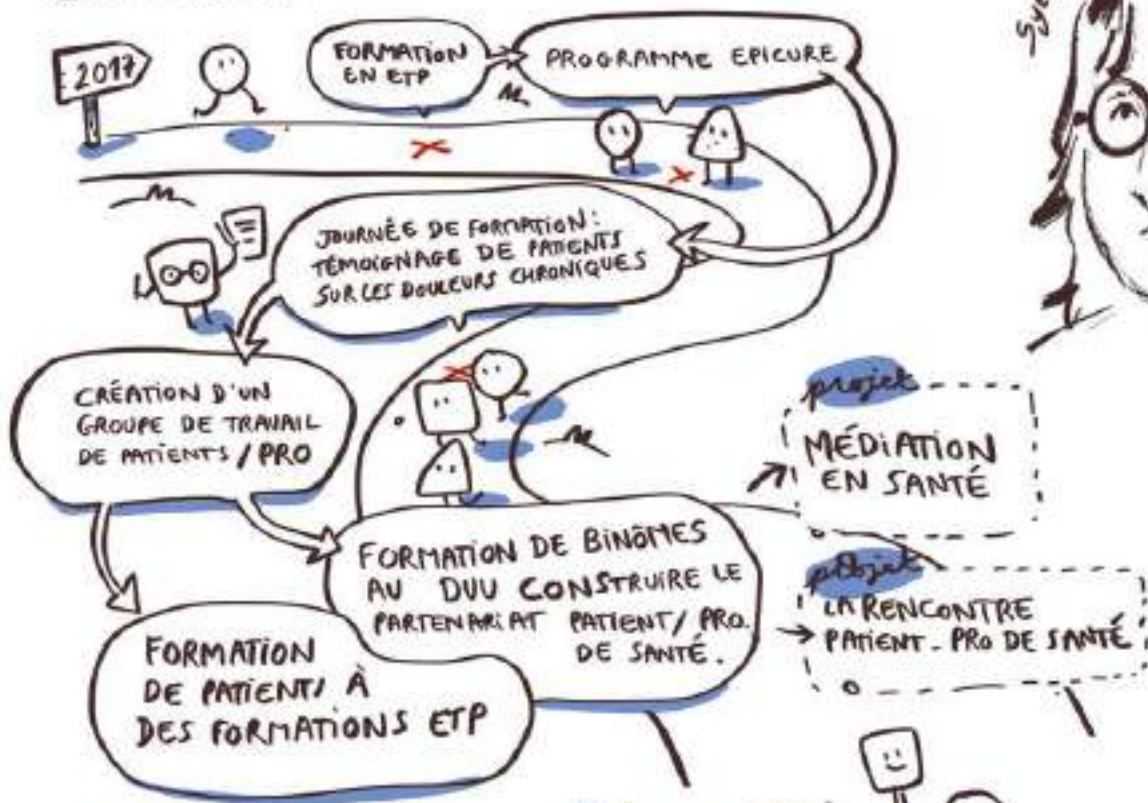 2017
FORMATION
EN ETP
PROGRAMME EPICURE
JOURNÉE DE FORMATION:
TÉMOIGNAGE DE PATIENTS
SUR LES DOULEURS CHRONIQUES
CRÉATION D'UN
GROUPE DE TRAVAIL
DE PATIENTS / PRO
FORMATION DE BINÔMES
AU DUU CONSTRUIRE LE
PARTENARIAT PATIENT / PRO.
DE SANTÉ.
FORMATION
DE PATIENTS À
DES FORMATIONS ETP
projet
MÉDIATION
EN SANTÉ
projet
LA RENCONTRE
PATIENT - PRO DE SANTÉ